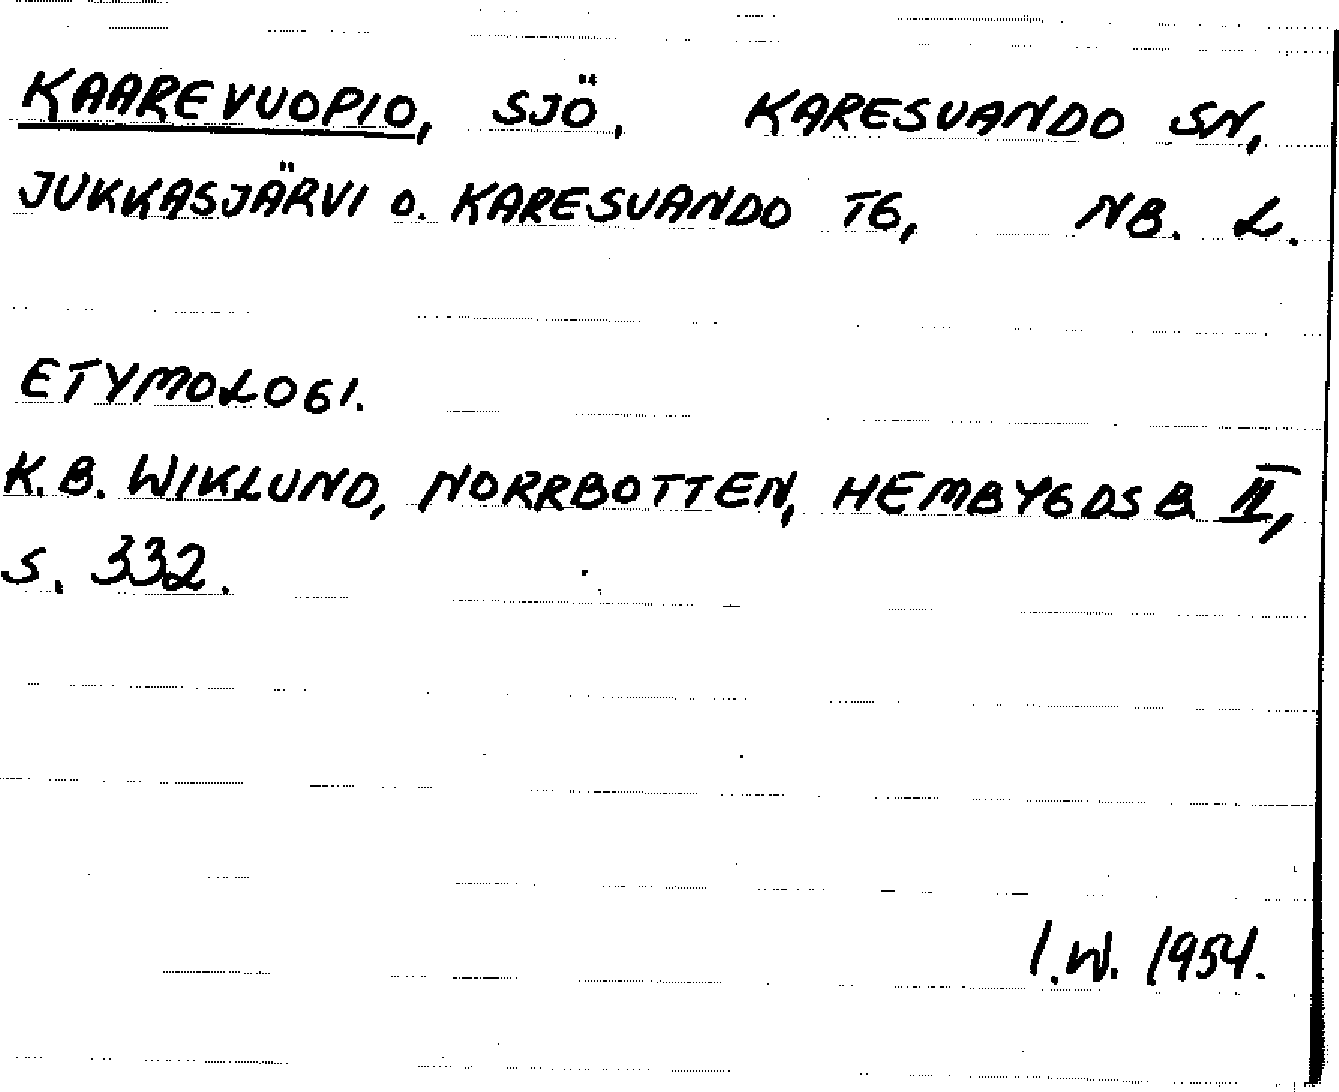 KAAREVUOPIO, SJÖ, KARESUANDO SN,
JUKKASJÄRVI O. KARESUANDO TG, NB. L.
ETYMOLOGI.
K. B. WIKLUND, NORRBOTTEN, HEMBYGDSB. II,
S. 332.
I.W. 1954.